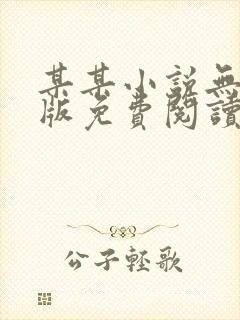 某某小說無
版免費閱讀
公子輕歌